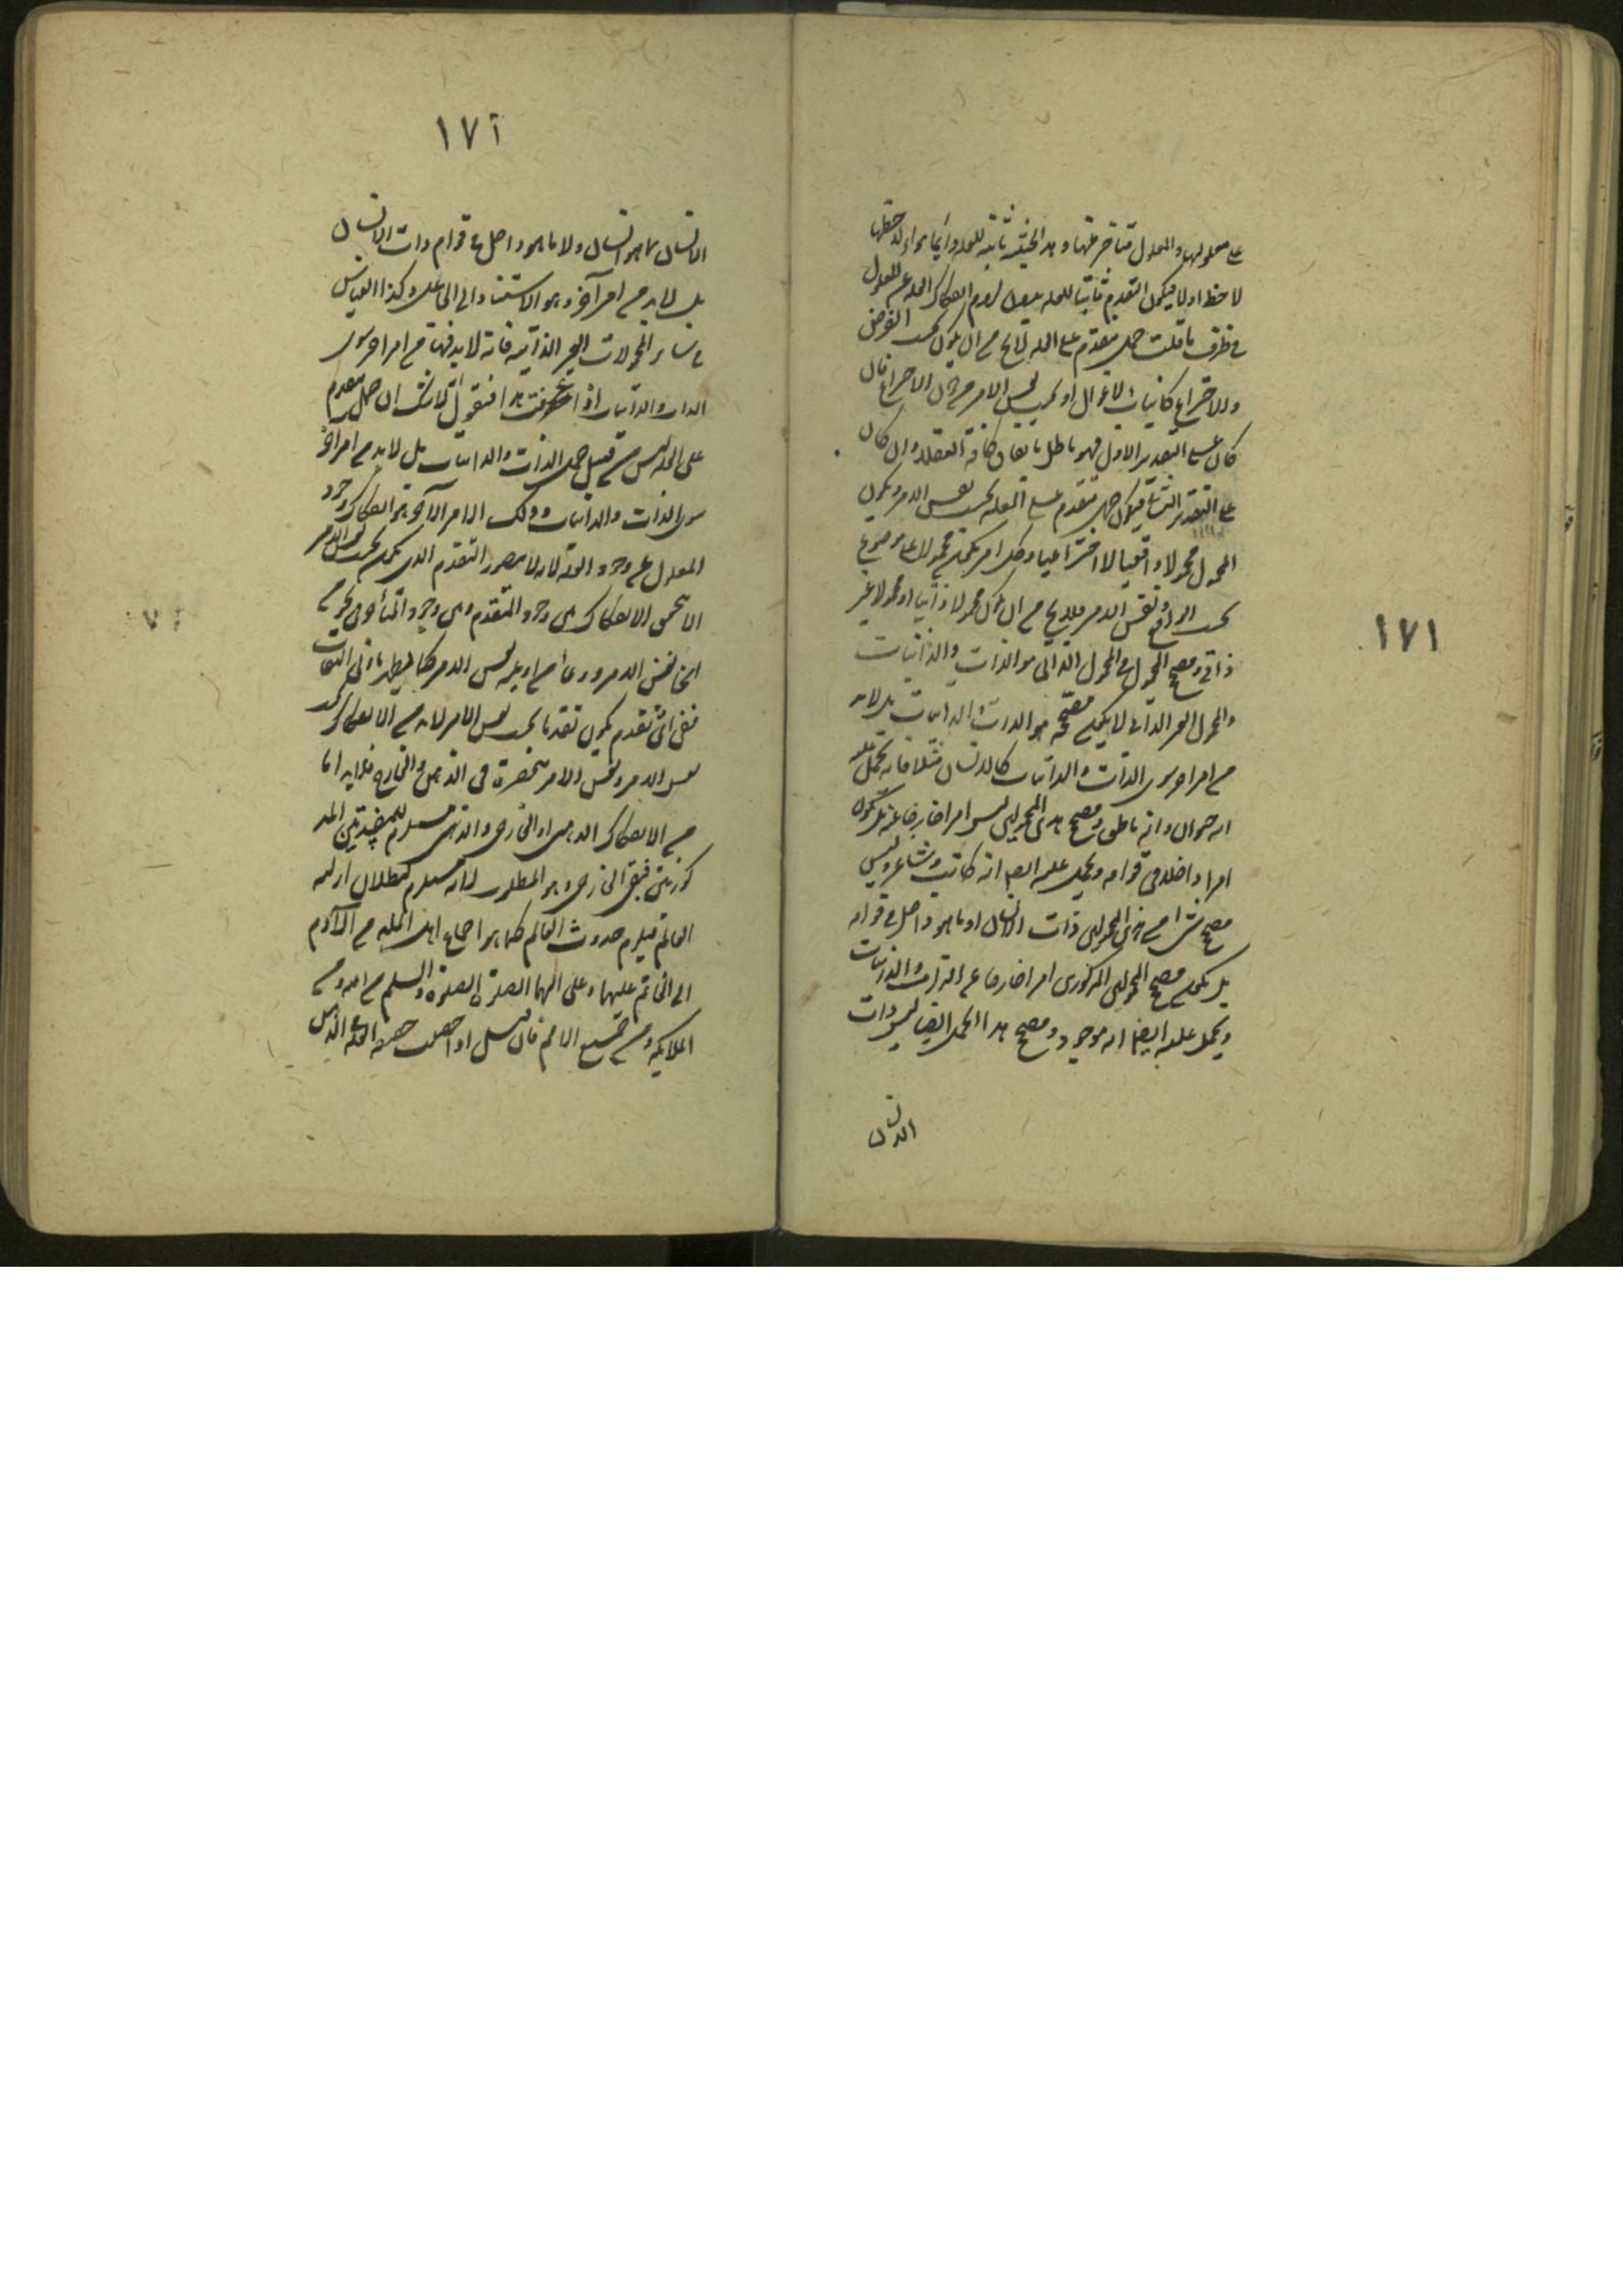 ١٧١
على معلولها والمعلول متأخر عنها وهذه الحيثية ثابتة للعلة دائما سواء لاحظها
لاحظ او لا فيكون التقدم ثابتا للعلة بدون لزوم انفكاك العلة عن المعلول
في ظرف ما قلت حمل متقدم على العلة لا يخ من ان يكون بحسب الفرض
والاختراع كانياب الاغوال او بحسب نفس الامر من دون الاختراع فان
كان على التقدير الاول فهو باطل باتفاق كافة العقلاء وان كان
على التقدير الثاني فيكون حمل متقدم على العلة بحسب نفس الامر ويكون
المحمول محمولا واقعيا لا اختراعيا وكل امر يكون محمولا على موضوع
بحسب الواقع ونفس الامر فلا يخ من ان يكون محمولا ذاتيا او محمولا غير
ذاتي ومصحح المحمول في المحمول الذاتي هو الذات والذاتيات
والمحمول الغير الذاتي لا يكون مصححه هو الذات والذاتيات بل لابد
من امر اخر سوى الذات والذاتيات كالانسان مثلا فانه يحمل عليه
انه حيوان وانه ناطق ومصحح هذين المحمولين ليس امرا خارجا عنه بل يكون
امرا داخلا في قوامه ويحمل عليه ايضا انه كاتب وشاعر وليس
مصحح هذين المحمولين ذات الانسان او ما هو داخل في قوامه
بل يكون مصحح المحمولين المذكورين امرا خارجا عن الذات والذاتيات
ويحمل عليه ايضا انه موجود ومصحح هذا الحمل ايضا ليس ذات
الانسان
١٧٢
الانسان بما هو انسان ولا ما هو داخل في قوام ذات الانسان
بل لابد من امر آخر وهو الاستناد الى الجاعل وكذا القياس
في سائر المحمولات الغير الذاتية فانه لابد فيها من امر اخر سوى
الذات والذاتيات اذا عرفت هذا فنقول لا شك ان حمل متقدم
على العلة ليس من قبيل حمل الذات والذاتيات بل لابد من امر آخر
سوى الذات والذاتيات وذلك الامر الآخر هو انفكاك وجود
المعلول عن وجود العلة لانه لا يتصور التقدم الذي يكون بحسب نفس الامر
الا بتحقق الانفكاك بين وجود المتقدم وبين وجود المتأخر في نحو من
انحاء نفس الامر ووعاء من اوعية نفس الامر كما يظهر بادنى التفات
ففي اي تقدم يكون تقدما بحسب نفس الامر لابد من الانفكاك بحسب
نفس الامر ونفس الامر منحصرة في الذهن والخارج فلابد اما
من الانفكاك الذهني او الخارجي والذهني مستلزم للمفسدتين المذ
كورتين فبقي الخارجي وهو المطلوب لانه مستلزم لبطلان ازلية
العالم فيلزم حدوث العالم كما هو اجماع اهل الملة من آدم
الى الخاتم عليهما وعلى آلهما الصلوة والسلم من الله ومن
الملائكة ومن جميع الامم فان قيل اذا حصلت حقيقة العلة في الذهن